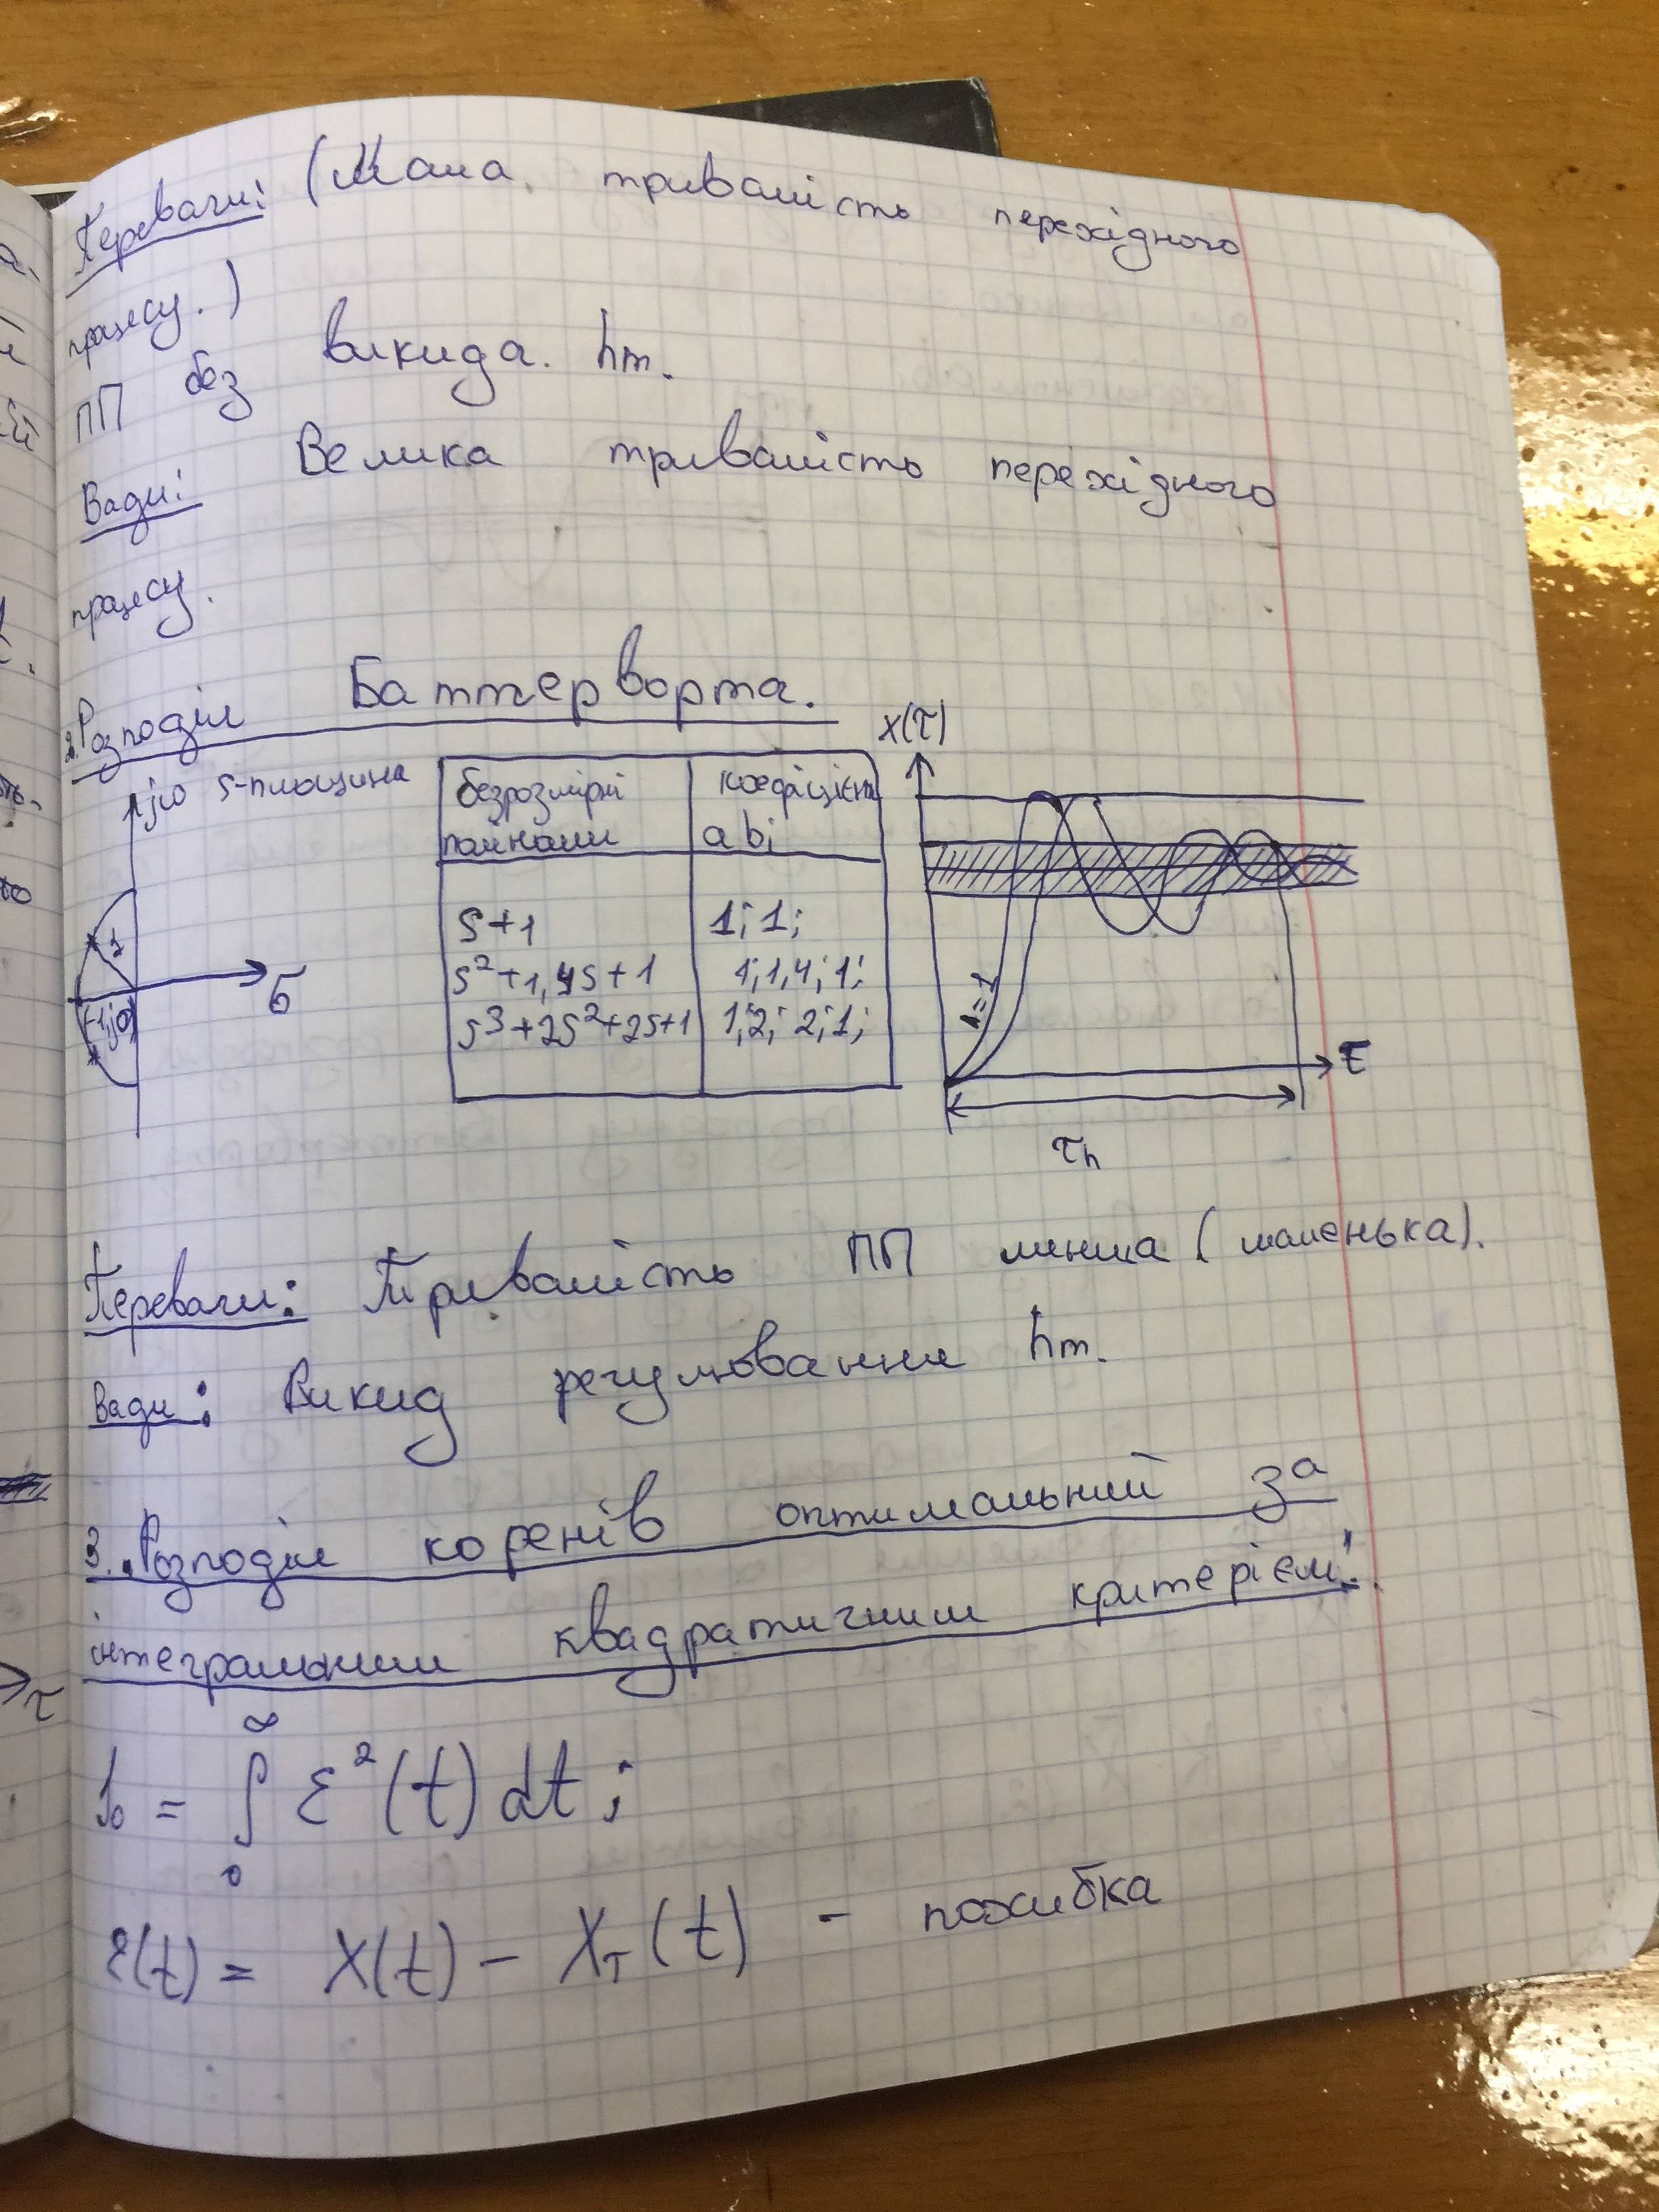 Переваги: (Мала тривалість перехідного
процесу.)
ПП без викида. hm.
Вади: Велика тривалість перехідного
процесу.
2. Розподіл Баттерворта.
jω s-площина
1
σ
(-1, j0)
безрозмірні поліноми
коефіцієнти abi
s+1 1; 1;
s²+1,4s+1 1; 1,4; 1;
s³+2s²+2s+1 1; 2; 2; 1;
X(τ)
n=1
τ
τn
Переваги: Тривалість ПП менша (маленька).
Вади: Викид регулювання hm.
3. Розподіл коренів оптимальний за
інтегральним квадратичним критерієм:
I₀ = ∫₀^∞ ε²(t) dt ;
ε(t) = X(t) – X_T(t) – похибка